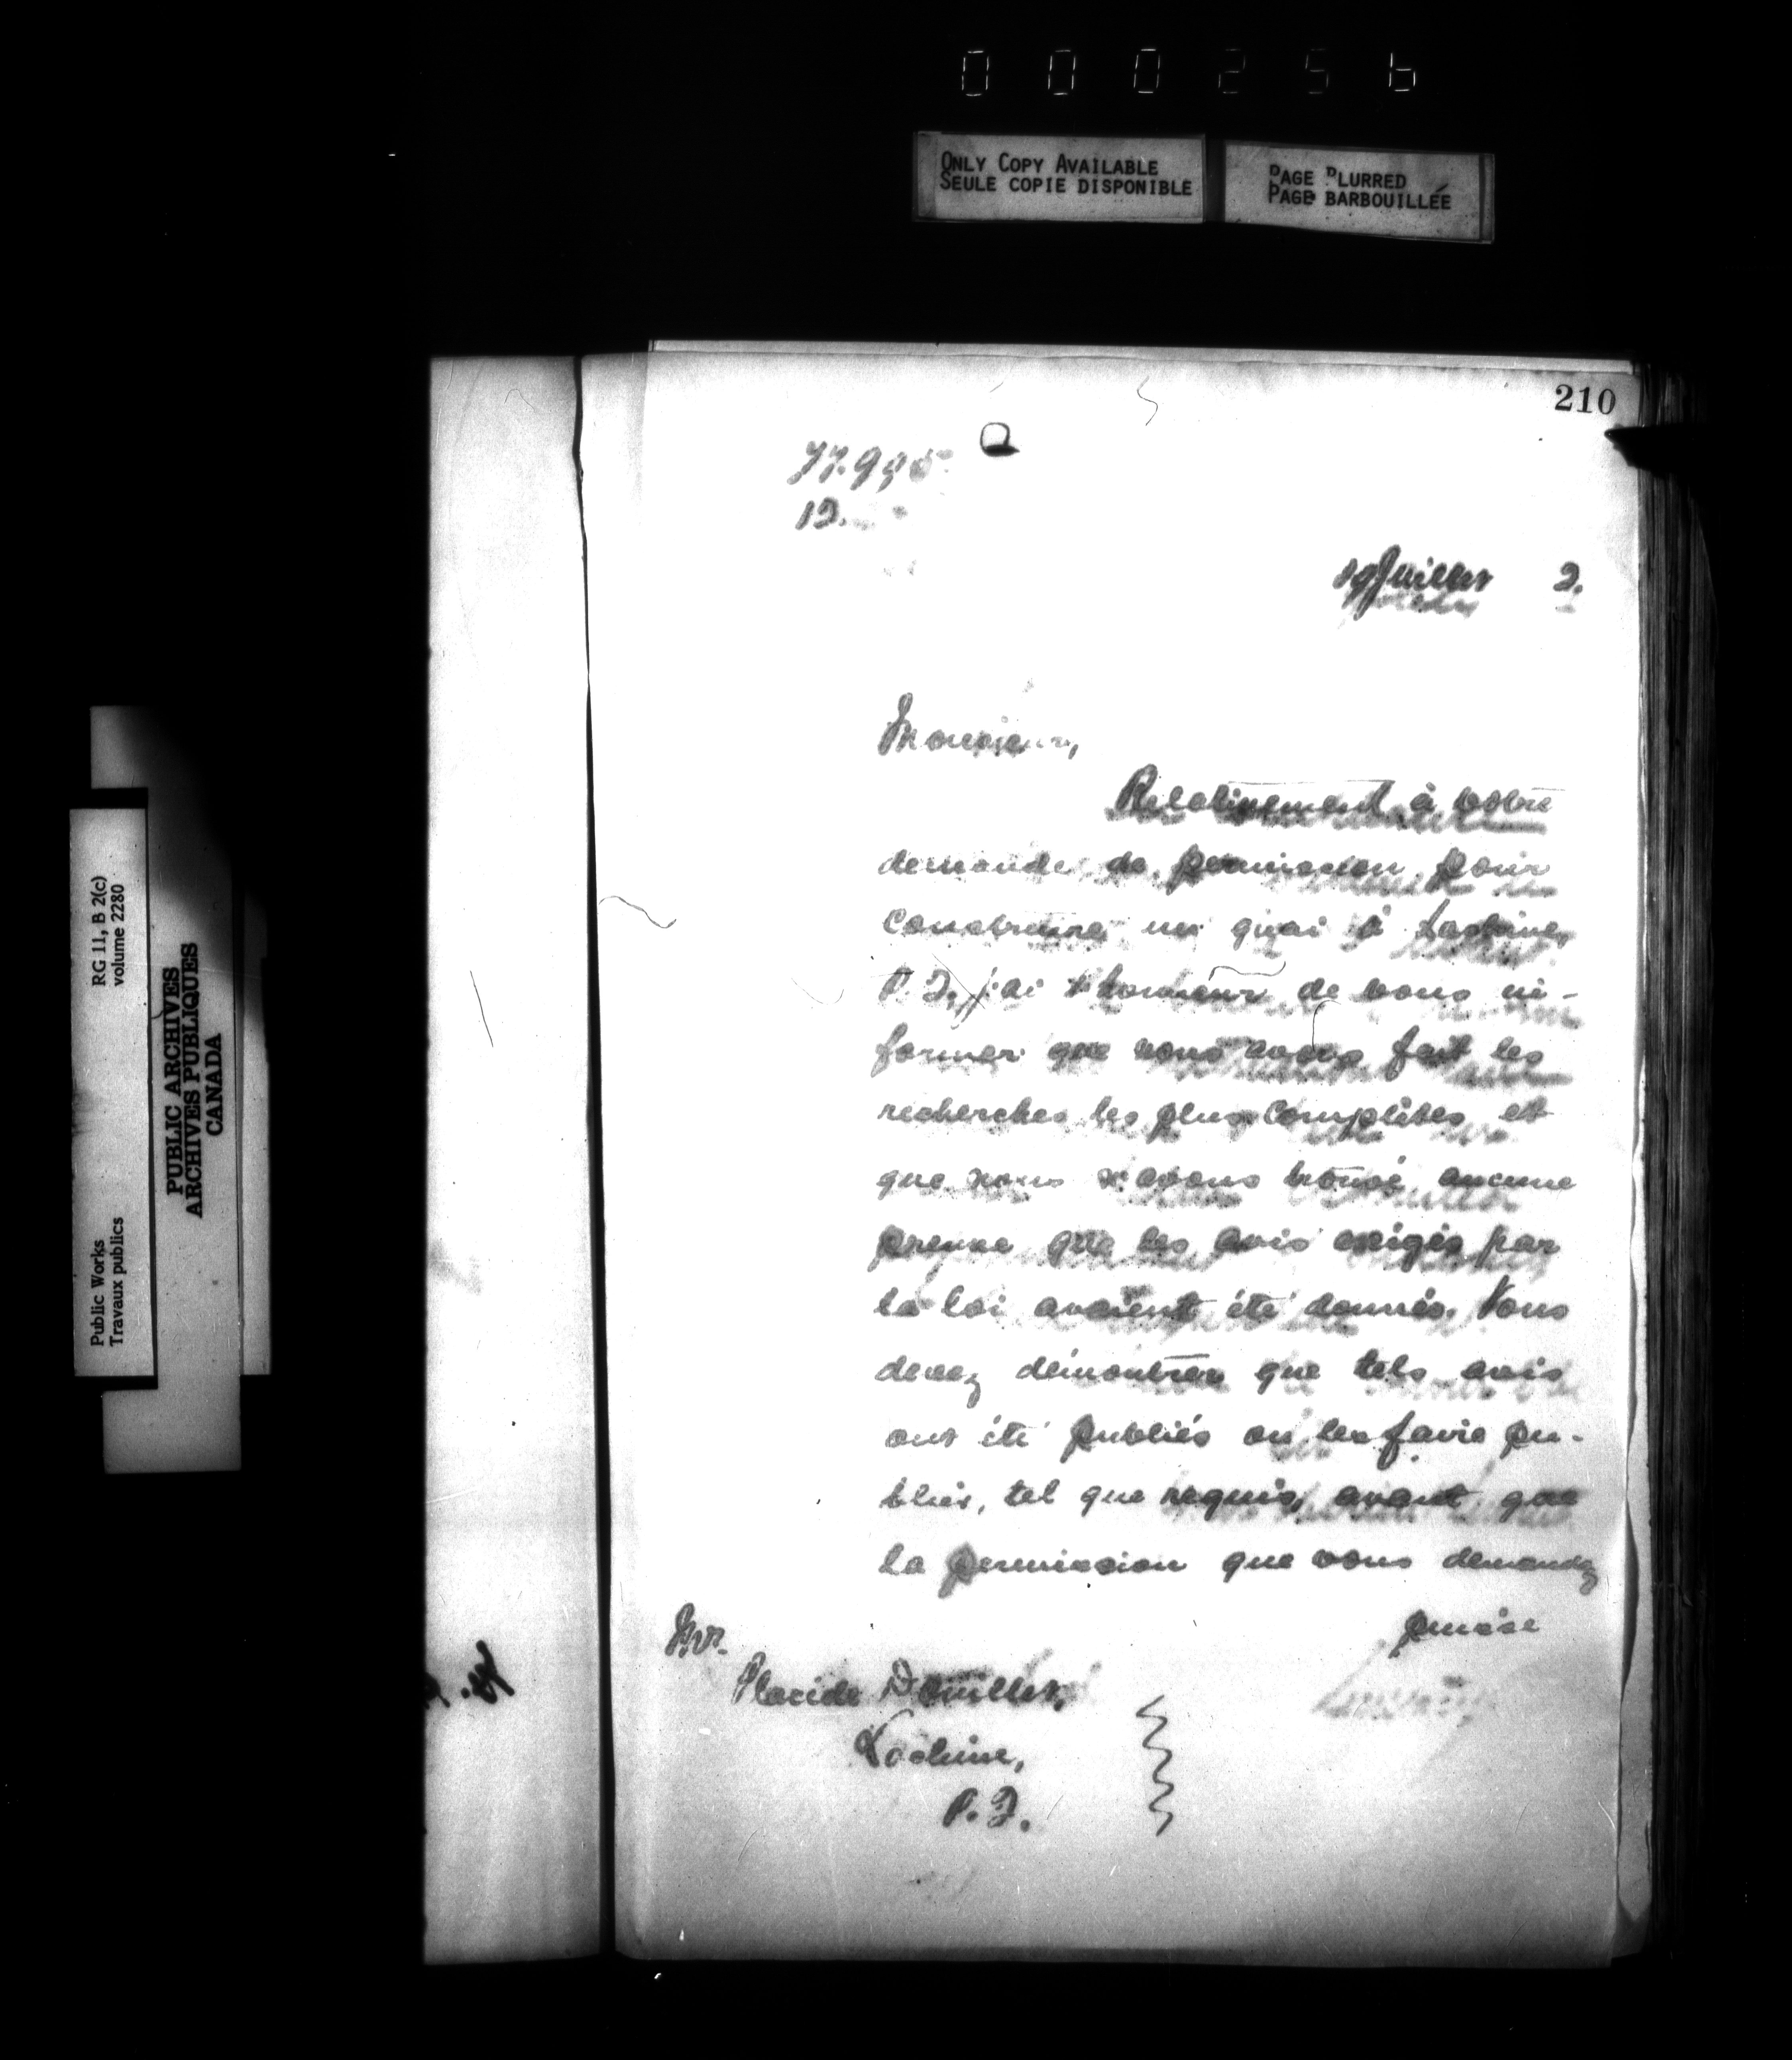 000256
ONLY COPY AVAILABLE
SEULE COPIE DISPONIBLE
PAGE BLURRED
PAGE BARBOUILLÉE
RG 11, B 2(c)
volume 2280
PUBLIC ARCHIVES
ARCHIVES PUBLIQUES
CANADA
Public Works
Travaux publics
210
Juillet 2.
Monsieur,
Relativement à votre
demande de permission pour
construire un quai à Lachine,
P.Q., j'ai l'honneur de vous in-
former que nous avons fait les
recherches les plus complètes et
que nous n'avons trouvé aucune
preuve que les avis exigés par
la loi avaient été donnés. Vous
devez démontrer que tels avis
ont été publiés ou les faire pu-
bliés, tel que requis, avant que
la permission que vous demandez
puisse
Mr.
Placide
Lachine,
P.Q.